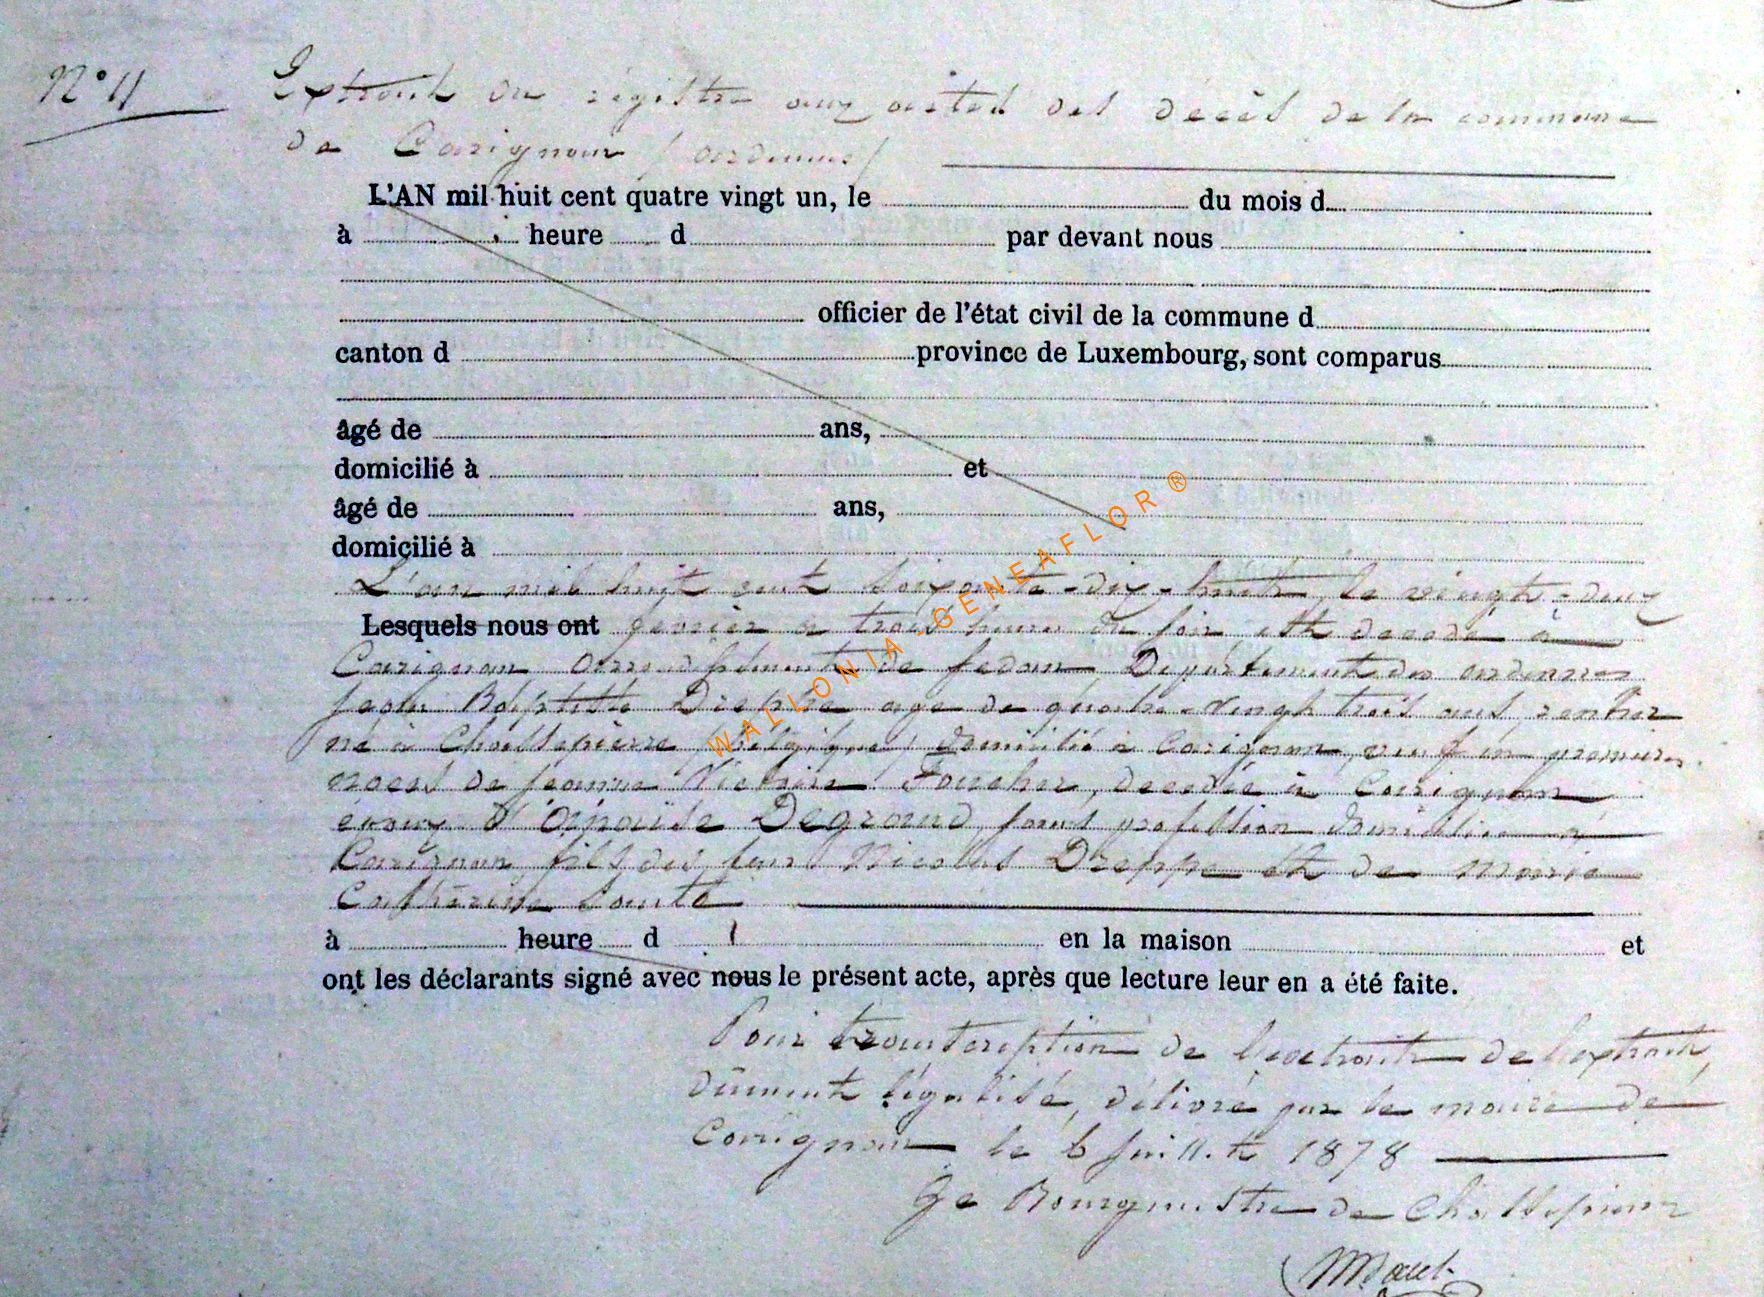 N° 11
Extrait du régistre aux actes des décès de la commune
de Carignan (ardennes)
L'AN mil huit cent quatre vingt un, le du mois d
à heure d par devant nous
officier de l'état civil de la commune d
canton d province de Luxembourg, sont comparus
âgé de ans,
domicilié à et
âgé de ans,
domicilié à
L'an mil huit cent soixante-dix-huit, le vingt-deux
Lesquels nous ont février à trois heures du soir est décédé à
Carignan arrondissement de Sedan Département des ardennes
Jean Baptiste Dreppe age de quatre-vingt trois ans, rentier
né à Chassepierre (Belgique) domicilié à Carignan, veuf en premières
noces de Jeanne Victoire Foucher, décedée à Carignan
époux d' Degrand, sans profession domiciliée à
Carignan, fils des feus Nicolas Dreppe et de Marie
Catherine
à heure d en la maison et
ont les déclarants signé avec nous le présent acte, après que lecture leur en a été faite.
Pour transcription de l'extrait de l'extrait,
dûment légalisé, délivré par le maire de
Carignan le 6 Juillet 1878
Le Bourgmestre de Chassepierre
WALLONIA-GENEAFLOR ®